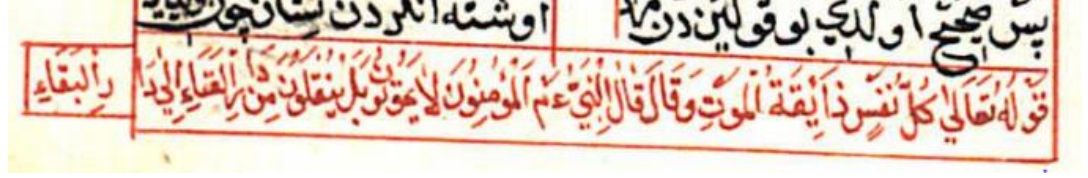 پس صحیح اولدي بو قولیندن
اوشته انلردن
قَوْلُهُ تَعَالَىٰ كُلُّ نَفْسٍ ذَائِقَةُ الْمَوْتِ وَقَالَ قَالَ النَّبِيُّ عَم الْمُؤْمِنُونَ لَا يَمُوتُونَ بَلْ يَنْقَلُونَ مِنْ دَارِ الْفَنَاءِ إِلَىٰ دَا
رِ الْبَقَاءِ